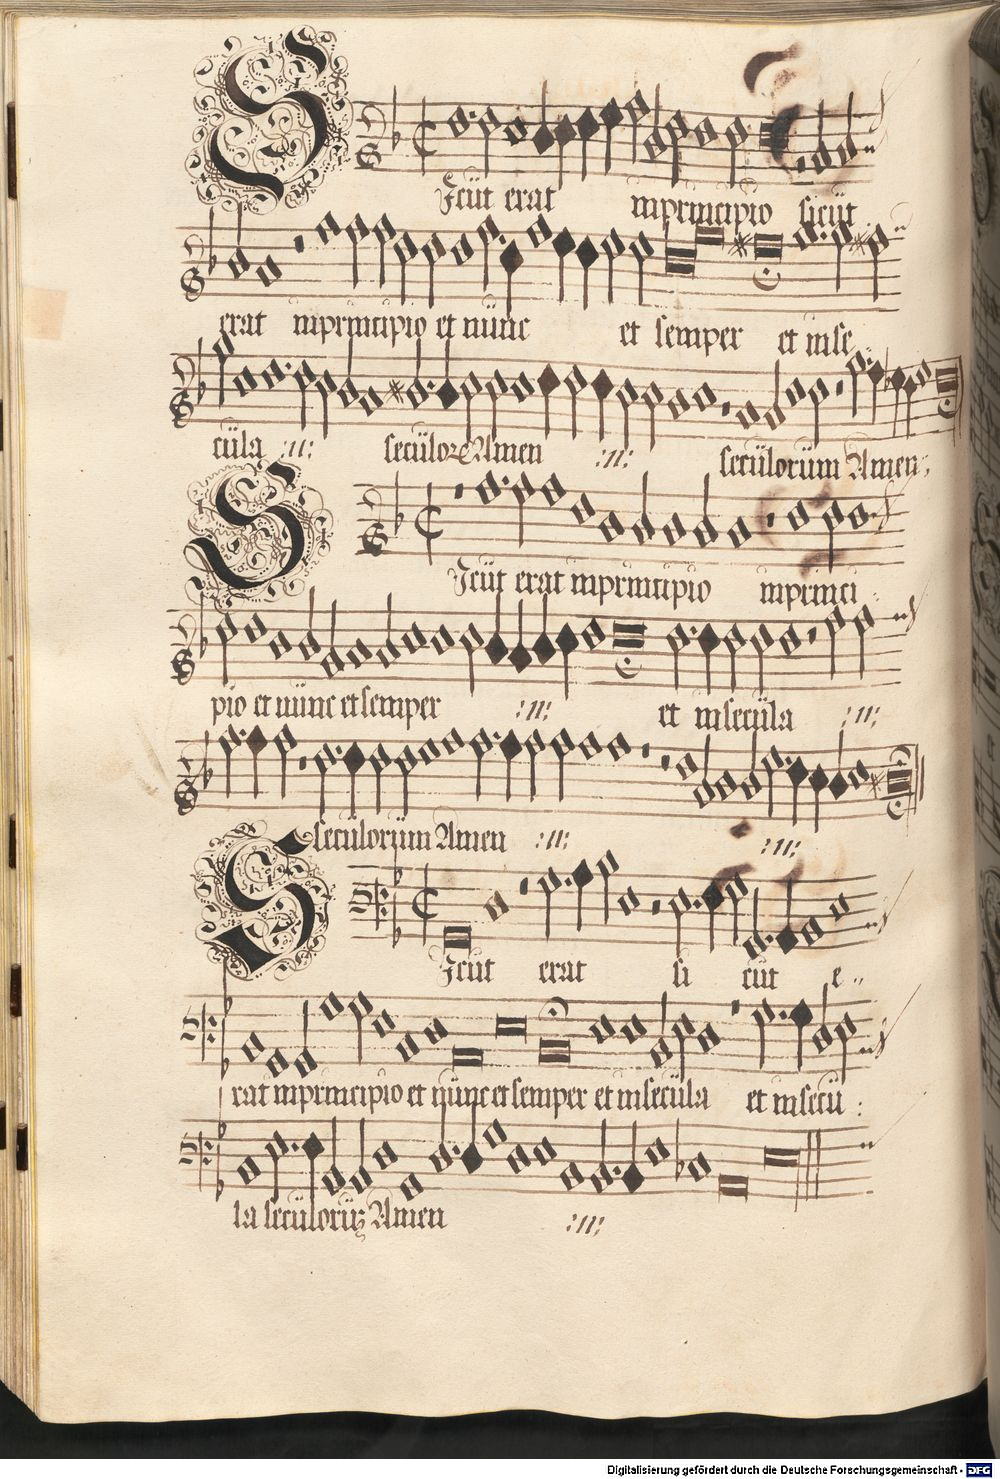 SJcüt erat inprincipio sicüt
erat inprincipio et nünc et semper et inse
cüla :ıı: secülorꝫ Amen :ıı: secülorüm Amen
SJcüt erat inprincipio inprinci
pio et nünc et semper :ıı: et insecüla :ıı:
secülorüm Amen :ıı: :ıı:
SJcüt erat si cüt e
rat inprincipio et nünc et semper et insecüla et insecü :
la secülorüꝫ Amen :ıı:
Digitalisierung gefördert durch die Deutsche Forschungsgemeinschaft - DFG